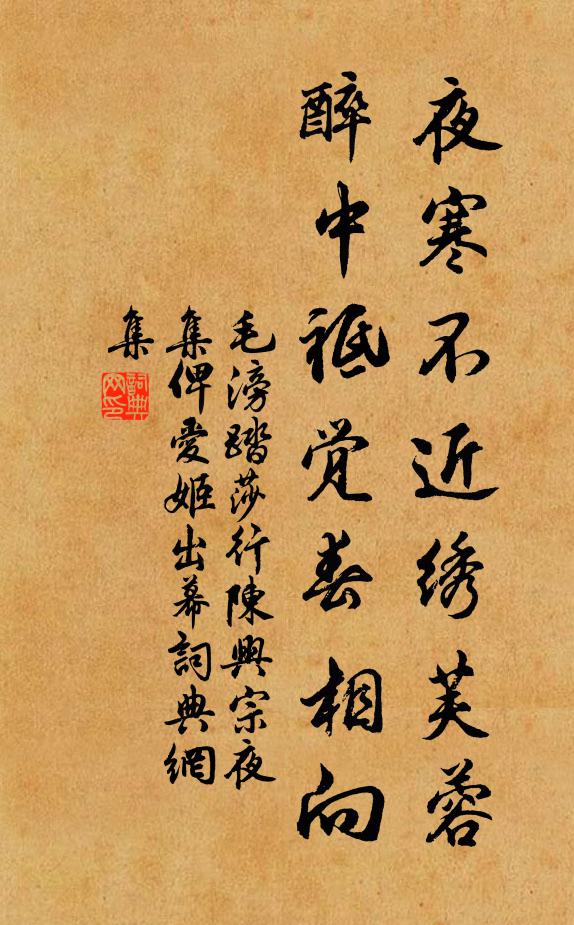 夜寒不近绣芙蓉
醉中祗觉春相向
毛滂踏莎行陳興宗夜
集俾愛姬出幕詞典網
集
詞典网印